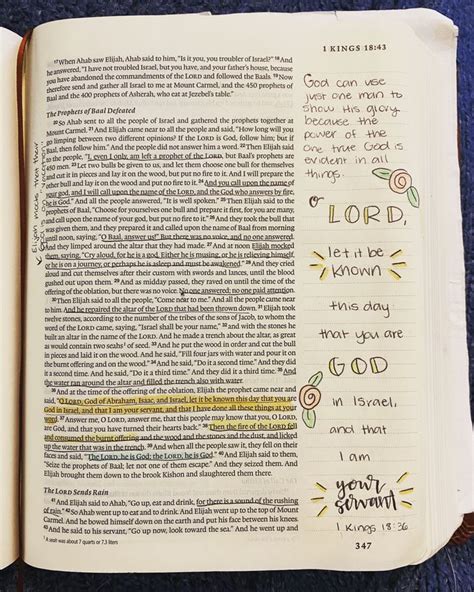 1 KINGS 18:43
17 When Ahab saw Elijah, Ahab said to him, "Is it you, you troubler of Israel?" 18 And
he answered, "I have not troubled Israel, but you have, and your father's house, because
you have abandoned the commandments of the LORD and followed the Baals. 19 Now
therefore send and gather all Israel to me at Mount Carmel, and the 450 prophets of
Baal and the 400 prophets of Asherah, who eat at Jezebel's table."
The Prophets of Baal Defeated
20 So Ahab sent to all the people of Israel and gathered the prophets together at
Mount Carmel. 21 And Elijah came near to all the people and said, "How long will you
go limping between two different opinions? If the LORD is God, follow him; but if
Baal, then follow him." And the people did not answer him a word. 22 Then Elijah said
to the people, "I, even I only, am left a prophet of the LORD, but Baal's prophets are
450 men. 23 Let two bulls be given to us, and let them choose one bull for themselves
and cut it in pieces and lay it on the wood, but put no fire to it. And I will prepare the
other bull and lay it on the wood and put no fire to it. 24 And you call upon the name of
your god, and I will call upon the name of the LORD, and the God who answers by fire,
he is God." And all the people answered, "It is well spoken." 25 Then Elijah said to the
prophets of Baal, "Choose for yourselves one bull and prepare it first, for you are many,
and call upon the name of your god, but put no fire to it." 26 And they took the bull that
was given them, and they prepared it and called upon the name of Baal from morning
until noon, saying, "O Baal, answer us!" But there was no voice, and no one answered.
And they limped around the altar that they had made. 27 And at noon Elijah mocked
them, saying, "Cry aloud, for he is a god. Either he is musing, or he is relieving himself,
or he is on a journey, or perhaps he is asleep and must be awakened." 28 And they cried
aloud and cut themselves after their custom with swords and lances, until the blood
gushed out upon them. 29 And as midday passed, they raved on until the time of the
offering of the oblation, but there was no voice. No one answered; no one paid attention.
30 Then Elijah said to all the people, "Come near to me." And all the people came near
to him. And he repaired the altar of the LORD that had been thrown down. 31 Elijah took
twelve stones, according to the number of the tribes of the sons of Jacob, to whom the
word of the LORD came, saying, "Israel shall be your name," 32 and with the stones he
built an altar in the name of the LORD. And he made a trench about the altar, as great
as would contain two seahs of seed. 33 And he put the wood in order and cut the bull
in pieces and laid it on the wood. And he said, "Fill four jars with water and pour it on
the burnt offering and on the wood." 34 And he said, "Do it a second time." And they did
it a second time. And he said, "Do it a third time." And they did it a third time. 35 And
the water ran around the altar and filled the trench also with water.
36 And at the time of the offering of the oblation, Elijah the prophet came near and
said, "O LORD, God of Abraham, Isaac, and Israel, let it be known this day that you are
God in Israel, and that I am your servant, and that I have done all these things at your
word. 37 Answer me, O LORD, answer me, that this people may know that you, O LORD,
are God, and that you have turned their hearts back." 38 Then the fire of the LORD fell
and consumed the burnt offering and the wood and the stones and the dust, and licked
up the water that was in the trench. 39 And when all the people saw it, they fell on their
faces and said, "The LORD, he is God; the LORD, he is God." 40 And Elijah said to them,
"Seize the prophets of Baal; let not one of them escape." And they seized them. And
Elijah brought them down to the brook Kishon and slaughtered them there.
The LORD Sends Rain
41 And Elijah said to Ahab, "Go up, eat and drink, for there is a sound of the rushing
of rain." 42 So Ahab went up to eat and to drink. And Elijah went up to the top of Mount
Carmel. And he bowed himself down on the earth and put his face between his knees.
43 And he said to his servant, "Go up now, look toward the sea." And he went up and
A seah was about 7 quarts or 7.3 liters
God can use
just one man to
show His glory
because the
power of the
one true God is
evident in all
things.
O
LORD,
let it be
known
this day
that you are
GOD
in Israel,
and that
I am
your
servant
1 Kings 18:36
347